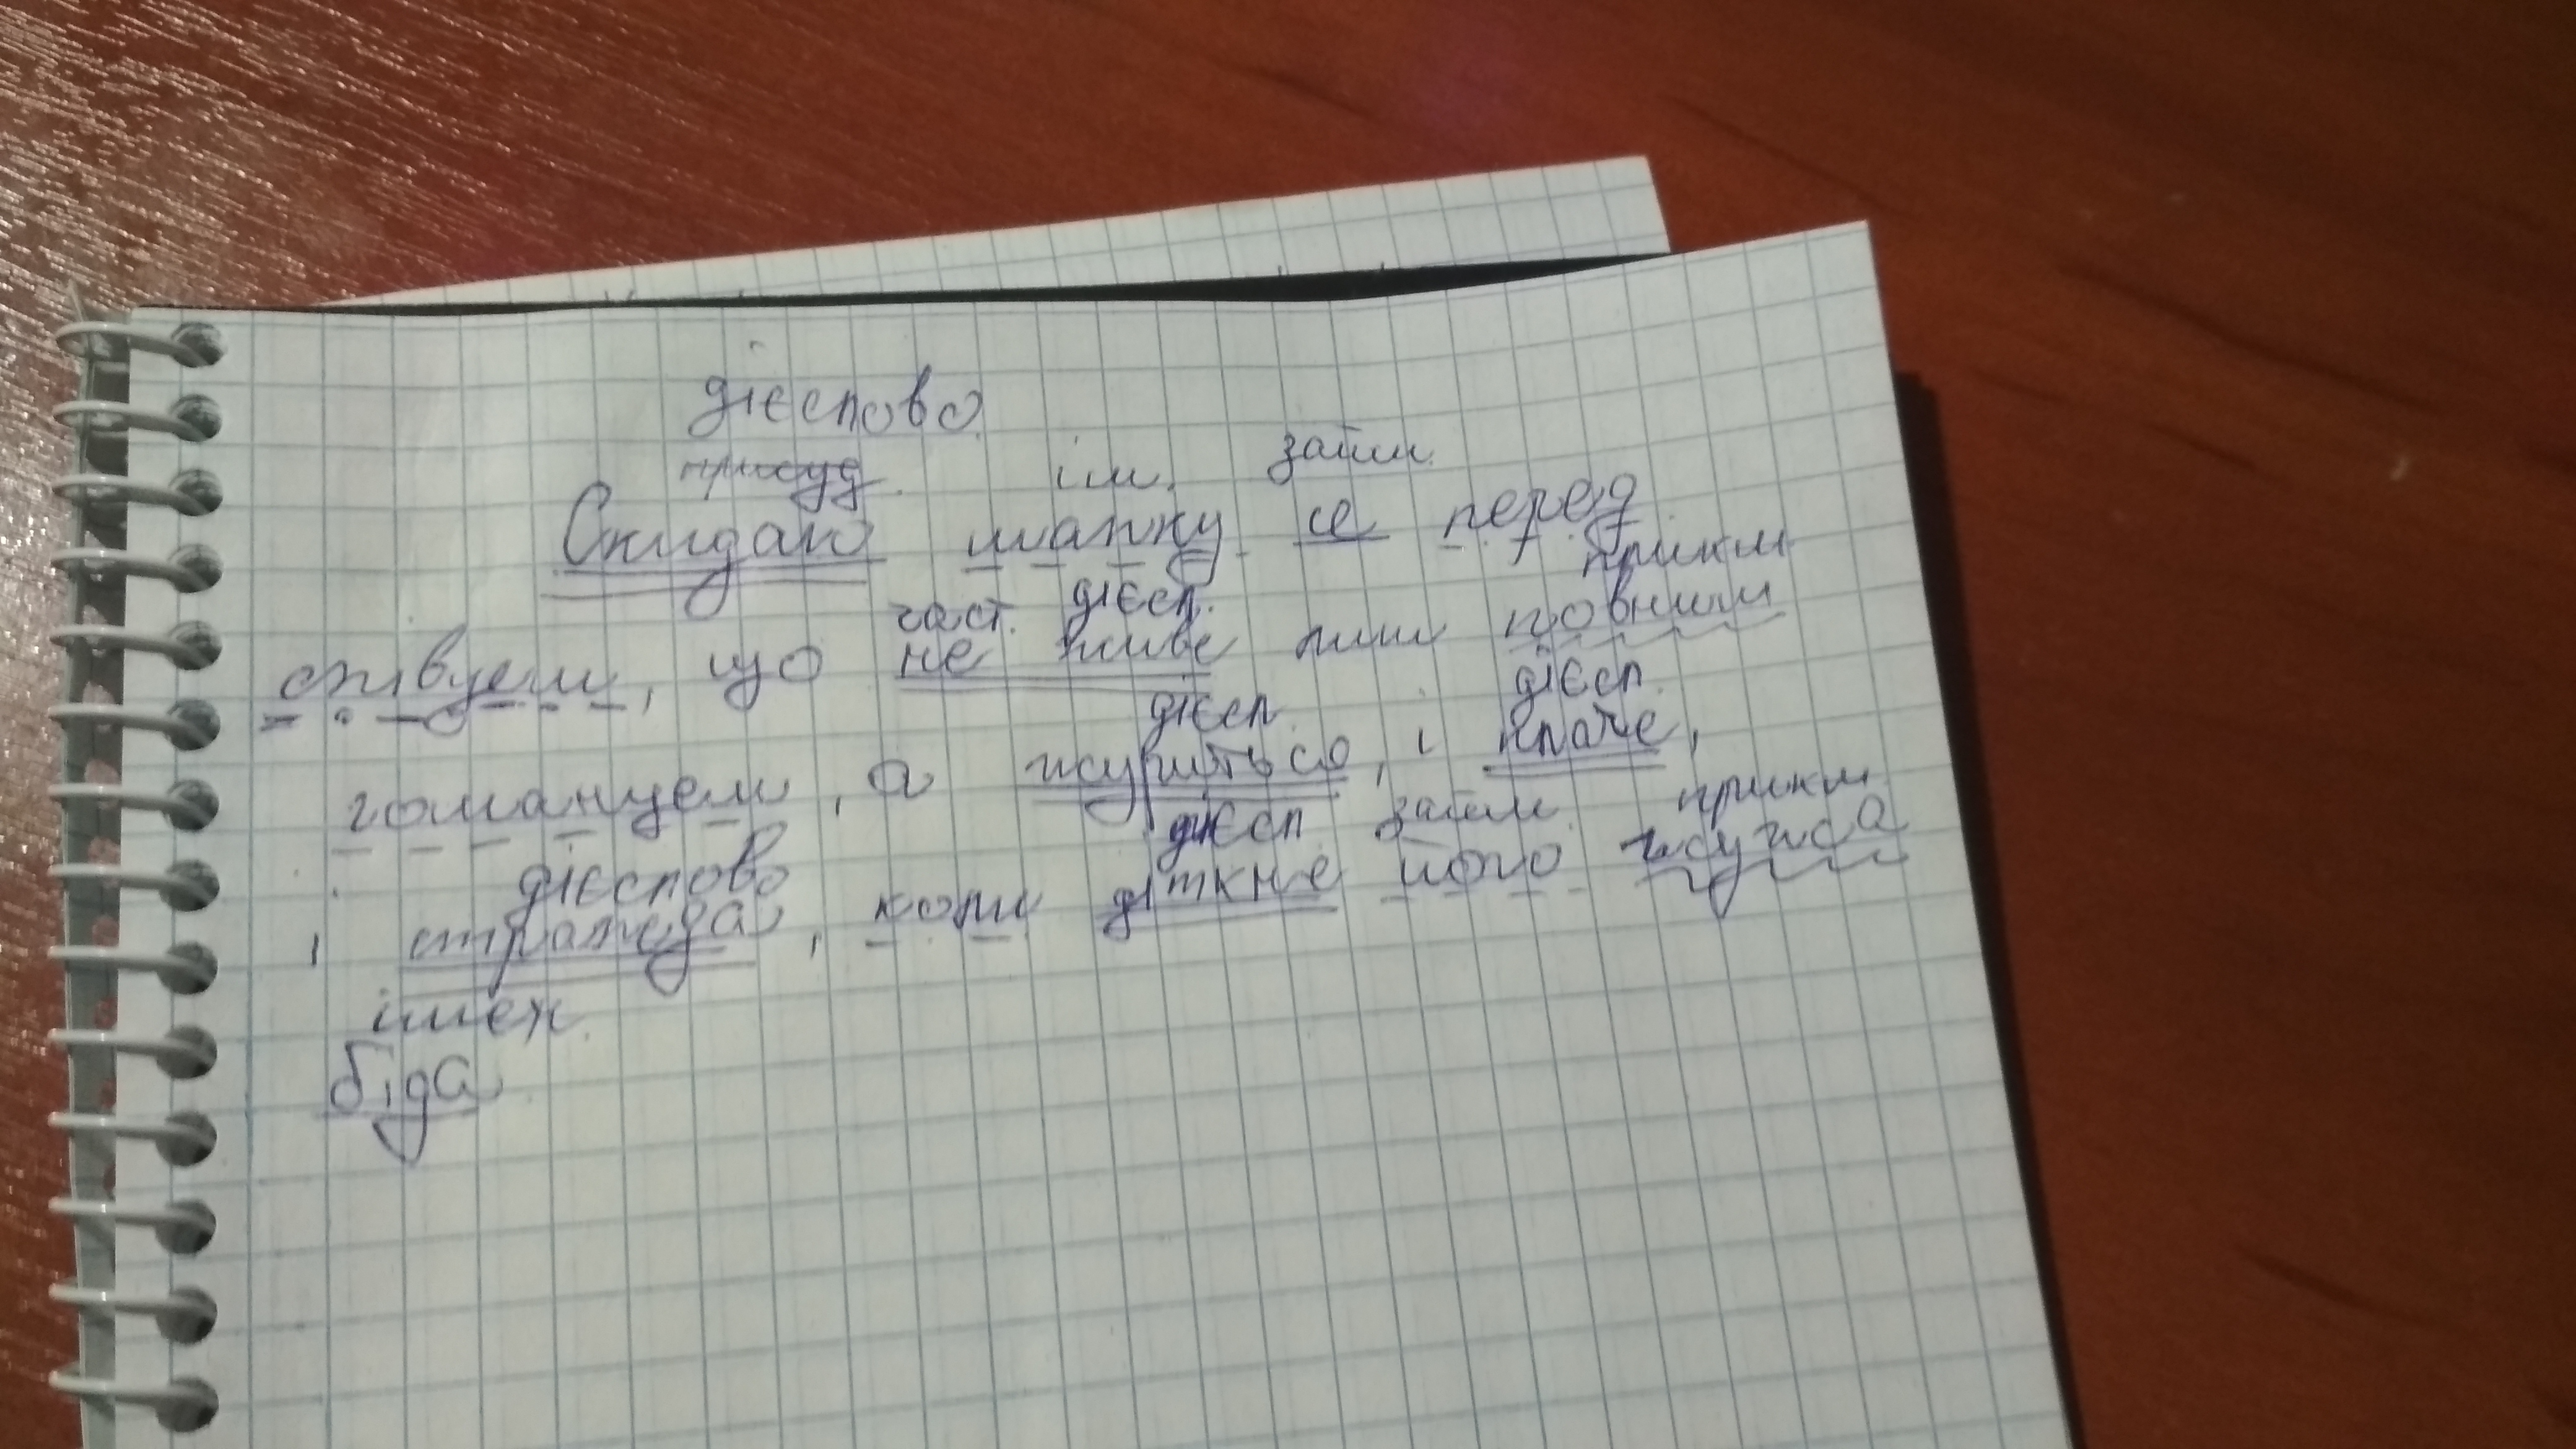 дієслово
присуд. ім. займ.
Скидаю шапку се перед
прикм
част. дієсл.
співцем, що не живе лиш повним
дієсл. дієсл.
гаманцем, а журиться, і плаче,
дієслово дієсл займ. прикм
і стражда, коли діткне його чужа
імен.
біда